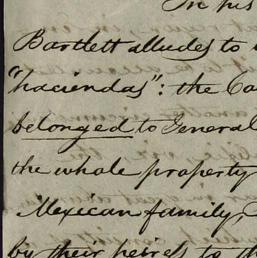 In his
Bartlett alludes to
"haciendas": the
belonged to General
the whole property
Mexican family,
by their heires to